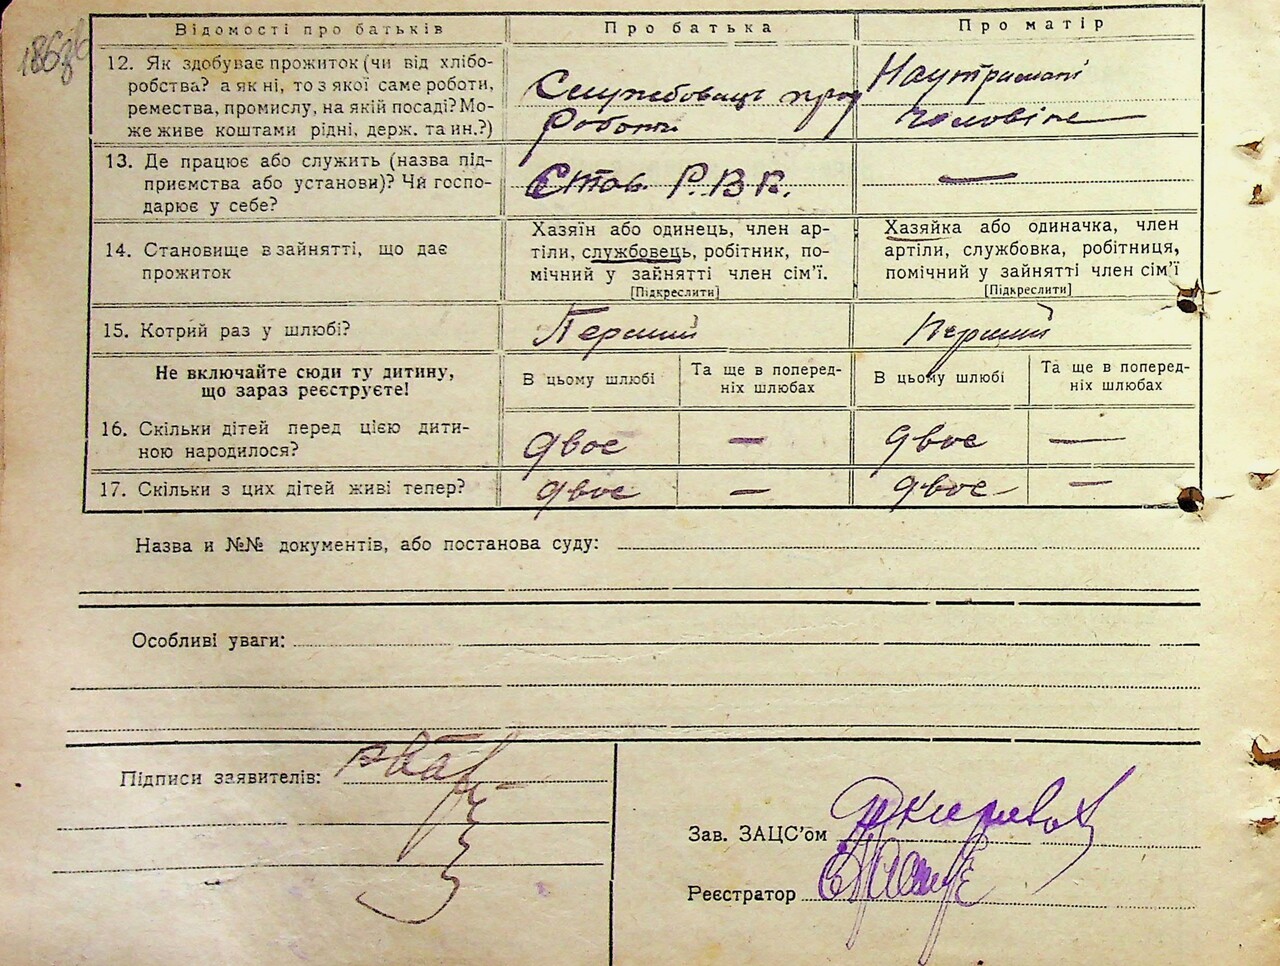 Відомості про батьків Про батька Про матір
12. Як здобуває прожиток (чи від хлібо-
робства? а як ні, то з якої саме роботи,
ремества, промислу, на якій посаді? Мо-
же живе коштами рідні, держ. та ин.?)
Службовець
роботи
Наутримані
чоловіка
13. Де працює або служить (назва під-
приємства або установи)? Чй госпо-
дарює у себе?
Став. Р.В.К.
—
14. Становище в зайнятті, що дає
прожиток
Хазяїн або одинець, член ар-
тіли, службовець, робітник, по-
мічний у зайнятті член сім'ї.
[Підкреслити]
Хазяйка або одиначка, член
артіли, службовка, робітниця,
помічний у зайнятті член сім'ї
[Підкреслити]
15. Котрий раз у шлюбі? Перший Перший
Не включайте сюди ту дитину,
що зараз реєструєте!
В цьому шлюбі
Та ще в поперед-
ніх шлюбах
В цьому шлюбі
Та ще в поперед-
ніх шлюбах
16. Скільки дітей перед цією дити-
ною народилося?
двоє — двоє —
17. Скільки з цих дітей живі тепер? двоє — двоє —
Назва и №№ документів, або постанова суду:
Особливі уваги:
Підписи заявителів:
Зав. ЗАЦС'ом
Реєстратор